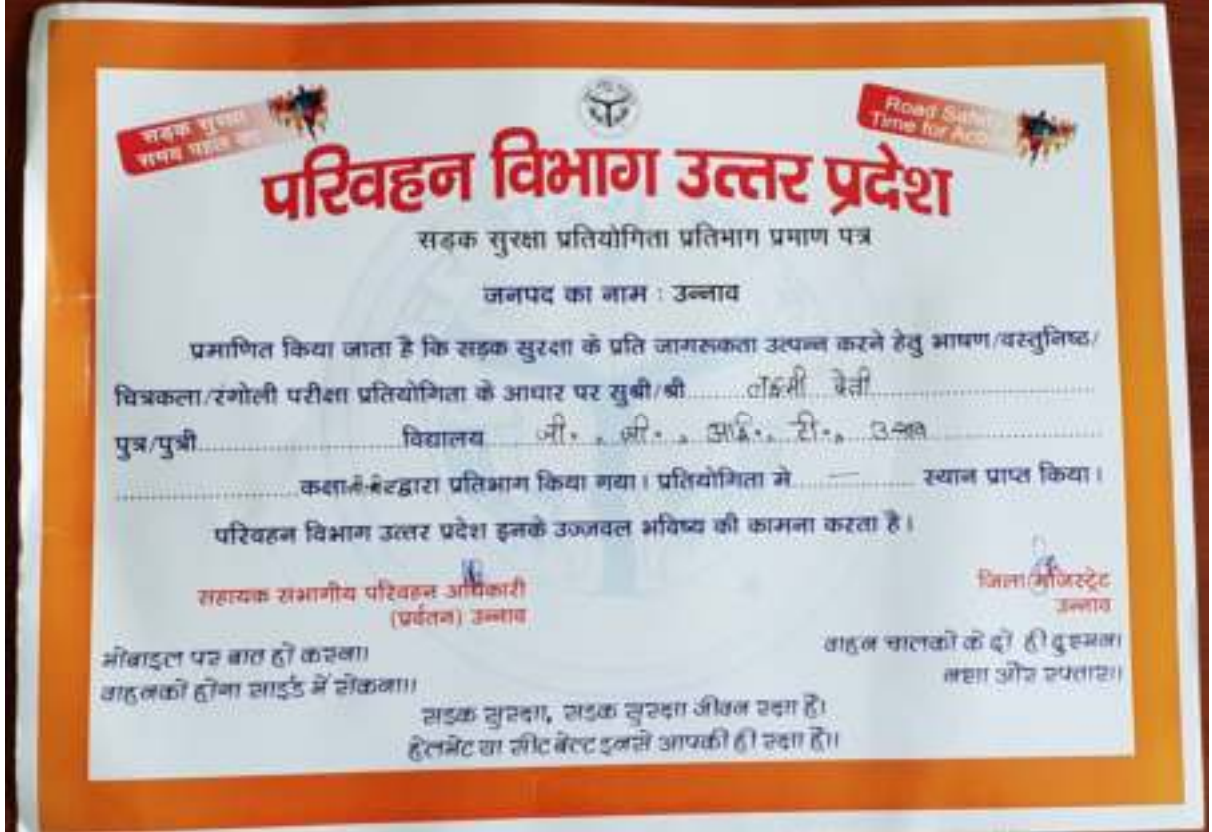 सड़क सुरक्षा
समय पहल का
Road Safety
Time for Action
परिवहन विभाग उत्तर प्रदेश
सड़क सुरक्षा प्रतियोगिता प्रतिभाग प्रमाण पत्र
जनपद का नाम : उन्नाव
प्रमाणित किया जाता है कि सड़क सुरक्षा के प्रति जागरूकता उत्पन्न करने हेतु भाषण/वस्तुनिष्ठ/
चित्रकला/रंगोली परीक्षा प्रतियोगिता के आधार पर सुश्री/श्री
पुत्र/पुत्री विद्यालय जी. जी. आई. टी. उन्नाव
कक्षा द्वारा प्रतिभाग किया गया। प्रतियोगिता मे — स्थान प्राप्त किया।
परिवहन विभाग उत्तर प्रदेश इनके उज्जवल भविष्य की कामना करता है।
सहायक संभागीय परिवहन अधिकारी
(प्रर्वतन) उन्नाव
जिला मजिस्ट्रेट
उन्नाव
मोबाइल पर बात हो करना।
वाहन को होगा साईड में रोकना।।
वाहन चालकों के दो ही दुश्मन।
नशा और रफ्तार।।
सड़क सुरक्षा, सड़क सुरक्षा जीवन रक्षा है।
हेलमेट या सीट बेल्ट इनसे आपकी ही रक्षा है।।